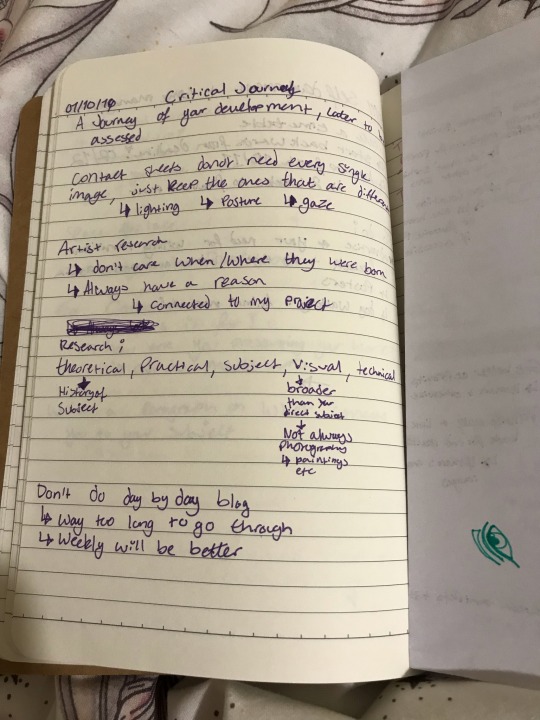 01/10/19 Critical Journey
A Journey of your development, later to be
assessed
Contact sheets donot need every single
image, just keep the ones that are different
↳ lighting ↳ Posture ↳ gaze
Artist research
↳ don't care when/where they were born
↳ Always have a reason
↳ connected to my project
Research;
theoretical, Practical, subject, Visual, technical
History of
Subject
broader
than your
direct subject
Not always
Photography
↳ paintings
etc
Don't do day by day blog
↳ Way too long to go through
↳ Weekly will be better